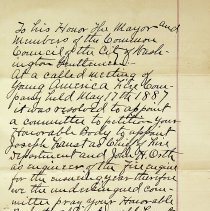 To his Honor the Mayor and
Members of the Common
Council of the City of Wash-
ington Gentlemen:-
At a called meeting of
Young America Fire Com-
pany held May 17th 1887
it was resolved to appoint
a committee to petition your
Honorable Body to appoint
Joseph Faust as Chief of Fire
department and John H. Orth
as engineer of the Fire Engine
for the ensuing year therefore
we the undersigned com-
mittee pray your Honorable